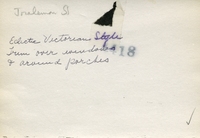 St
Victorian Style
418
Trim over windows
& around porches